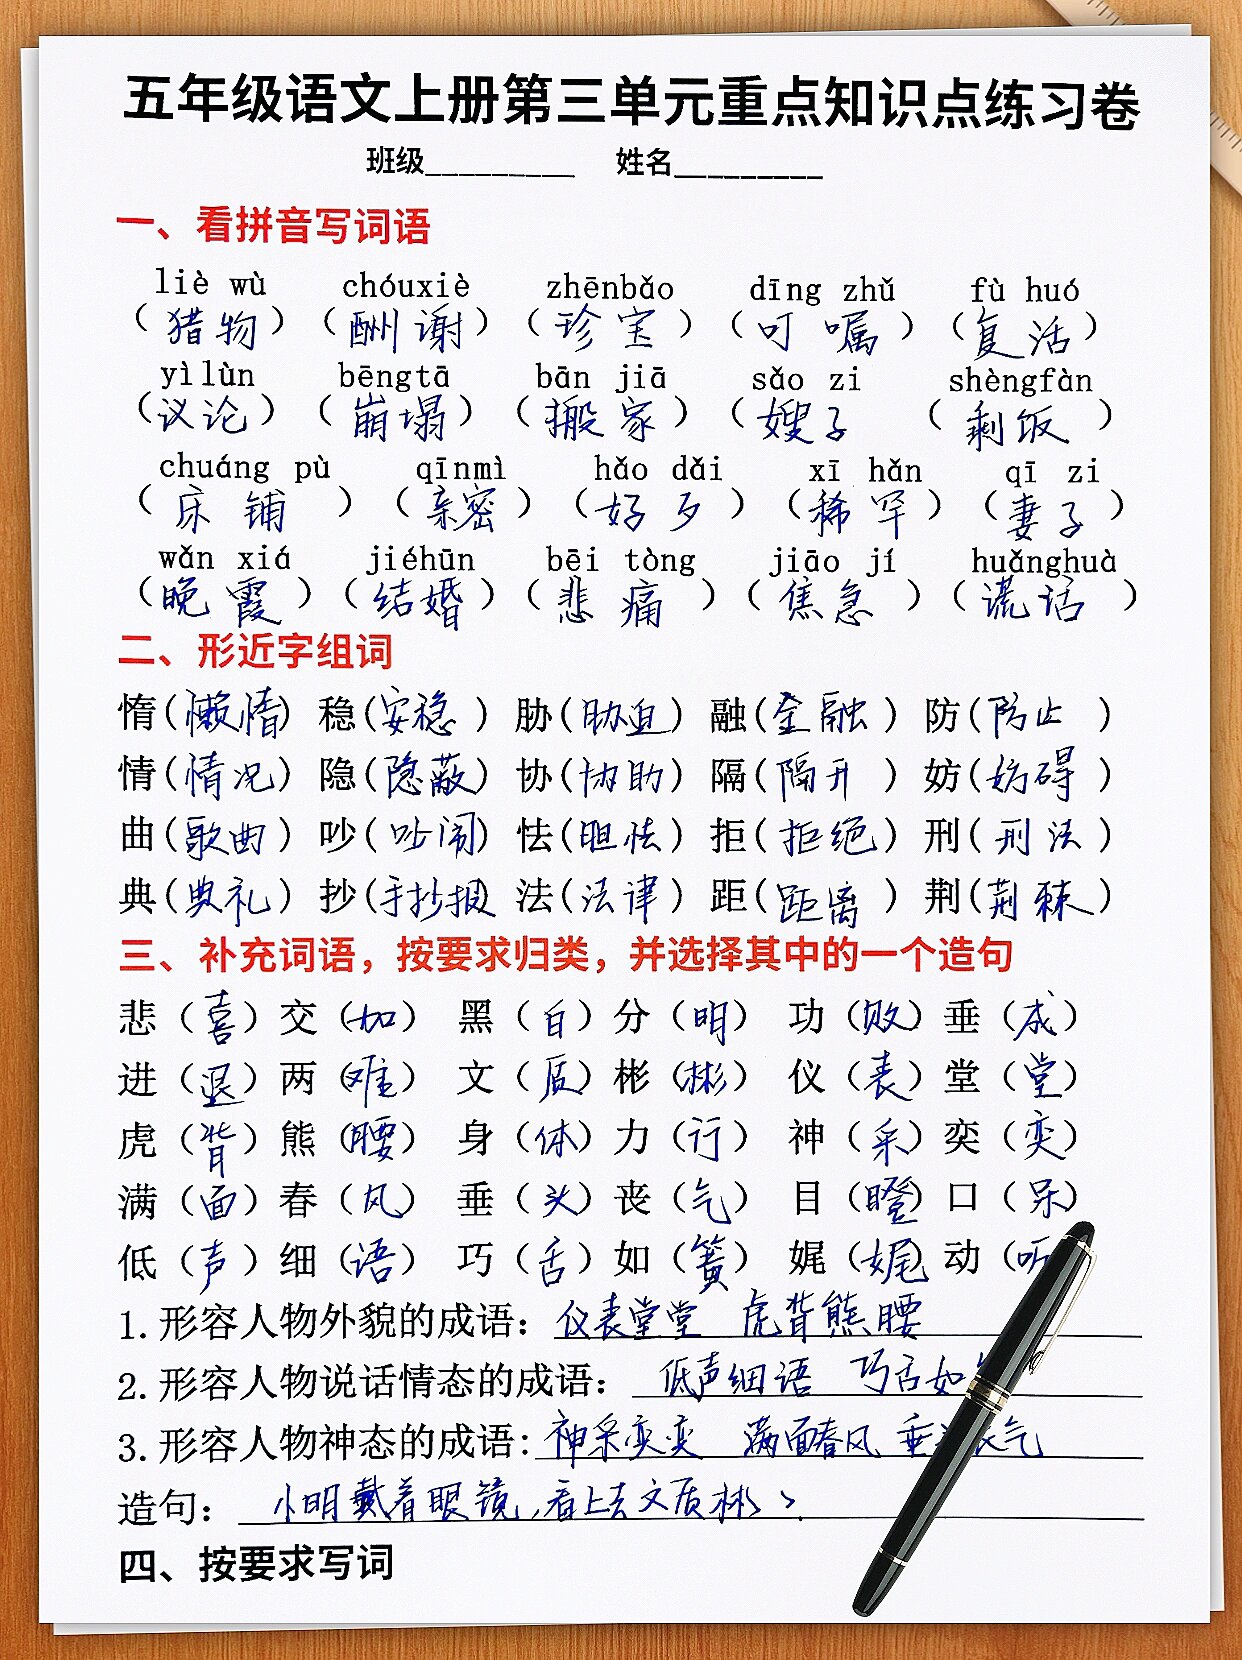 五年级语文上册第三单元重点知识点练习卷
班级_________ 姓名_________
一、看拼音写词语
liè wù chóuxiè zhēnbǎo dīng zhǔ fù huó
(猎物) (酬谢) (珍宝) (叮嘱) (复活)
yìlùn bēngtā bān jiā sǎo zi shèngfàn
(议论) (崩塌) (搬家) (嫂子 (剩饭)
chuáng pù qīnmì hǎo dǎi xī hǎn qī zi
(床铺) (亲密) (好歹) (稀罕) (妻子)
wǎn xiá jiéhūn bēi tòng jiāo jí huǎnghuà
(晚霞) (结婚) (悲痛) (焦急) (谎话)
二、形近字组词
惰(懒惰) 稳(安稳) 胁(胁迫) 融(金融) 防(防止)
情(情况) 隐(隐蔽) 协(协助) 隔(隔开) 妨(妨碍)
曲(歌曲) 吵(吵闹) 怯(胆怯) 拒(拒绝) 刑(刑法)
典(典礼) 抄(手抄报) 法(法律) 距(距离) 荆(荆棘)
三、补充词语，按要求归类，并选择其中的一个造句
悲(喜)交(加) 黑(白)分(明) 功(败)垂(成)
进(退)两(难) 文(质)彬(彬) 仪(表)堂(堂)
虎(背)熊(腰) 身(体)力(行) 神(采)奕(奕)
满(面)春(风) 垂(头)丧(气) 目(瞪)口(呆)
低(声)细(语) 巧(舌)如(簧) 娓(娓)动(听
1.形容人物外貌的成语：仪表堂堂 虎背熊腰
2.形容人物说话情态的成语：低声细语 巧舌如
3.形容人物神态的成语：神采奕奕 满面春风 垂 气
造句：小明戴着眼镜，看上去文质彬彬。
四、按要求写词